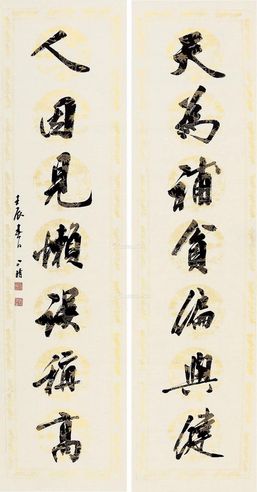 天为補貧偏與健
人因見懶误稱高
壬辰春月